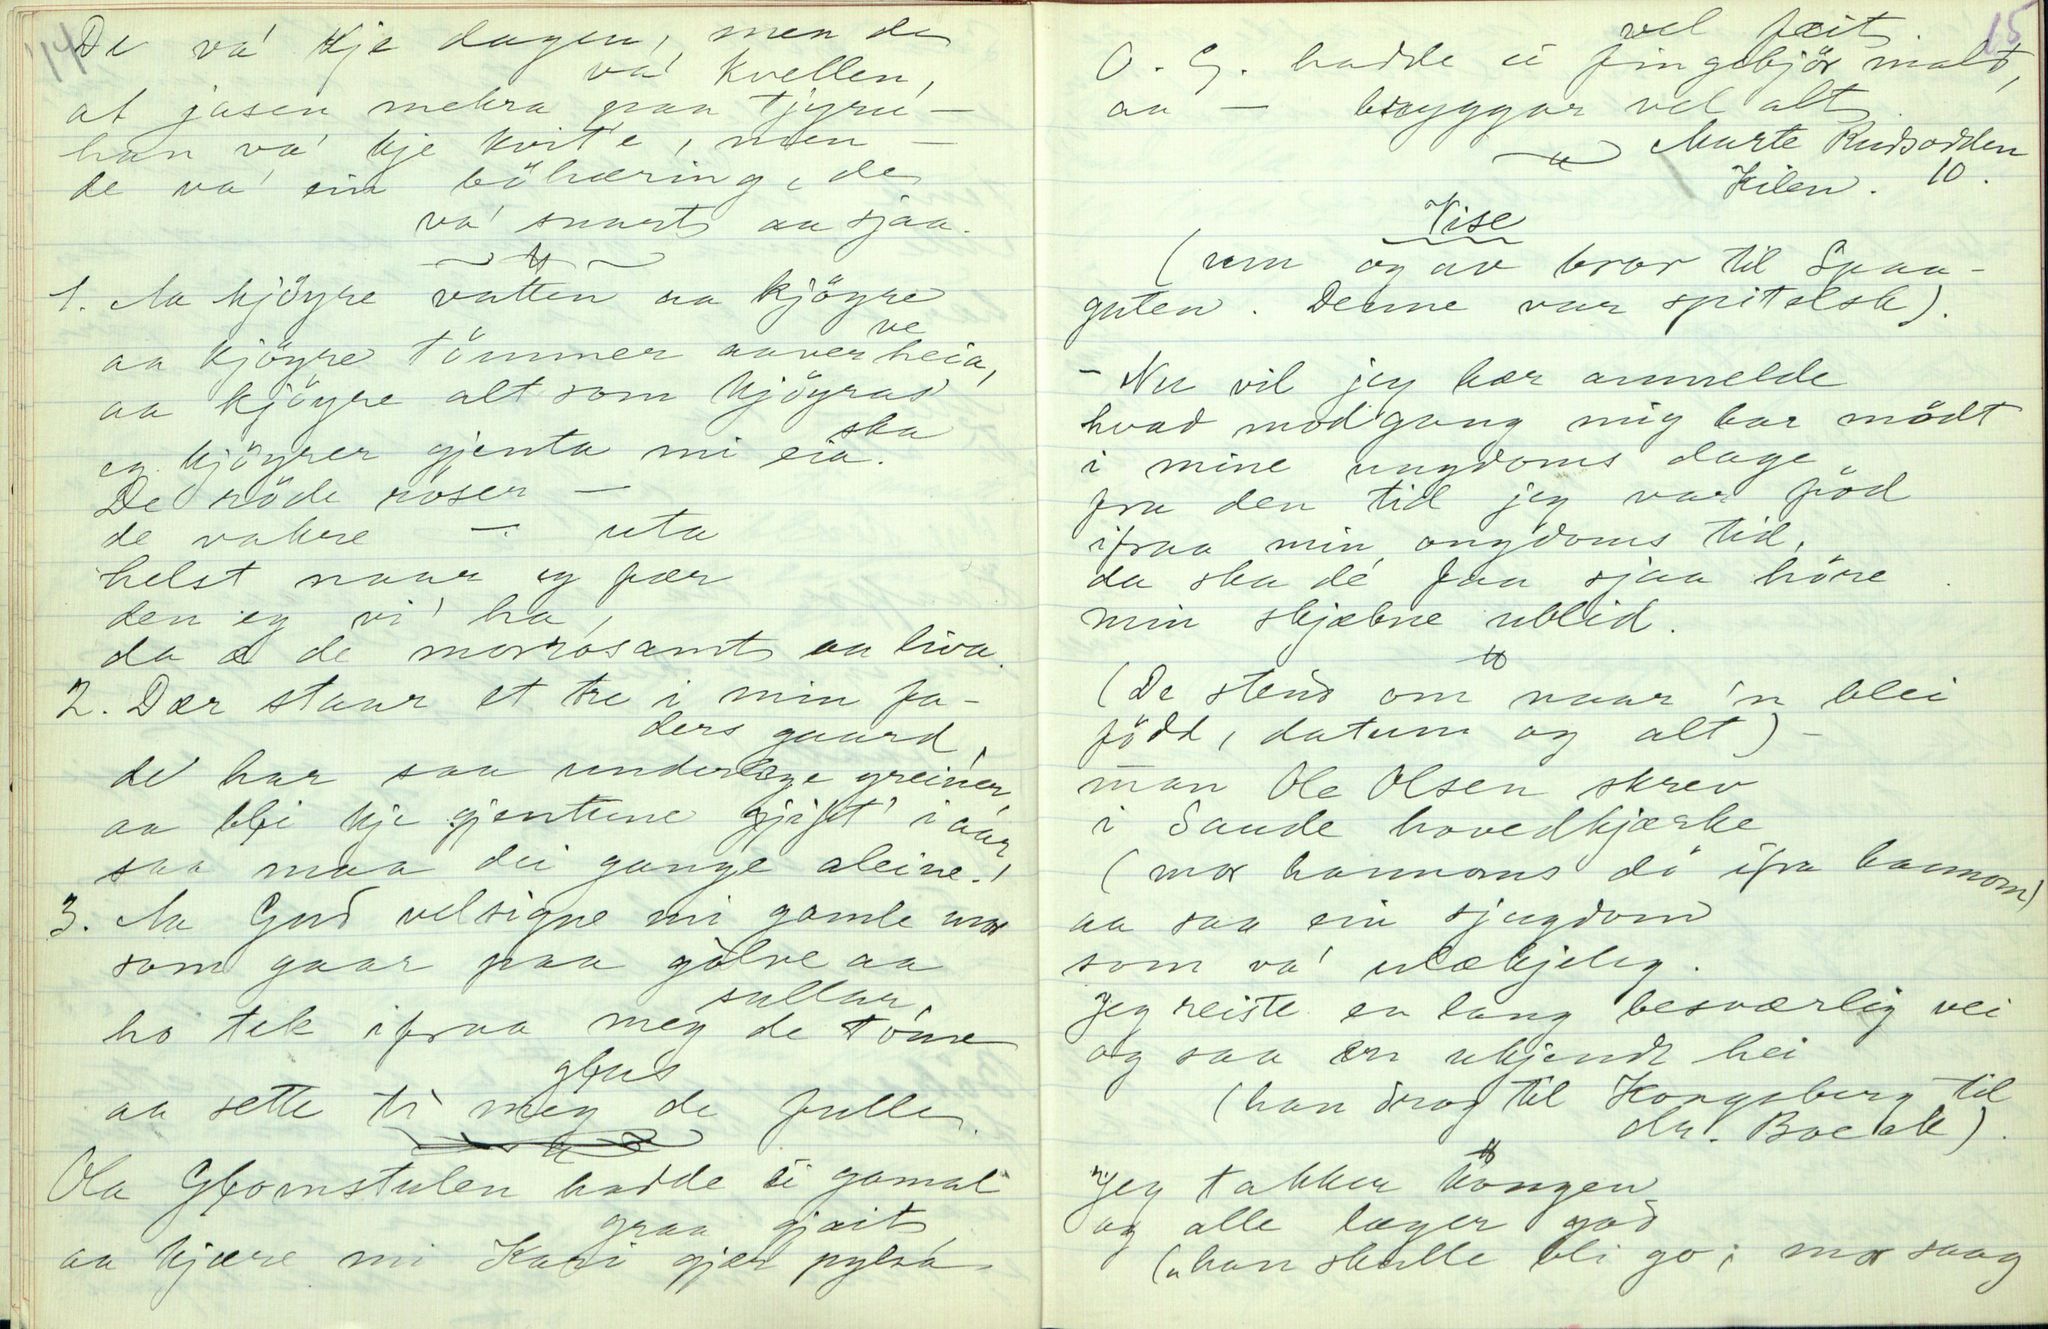 14
De va' kje dagen, men de
va' kvellen,
at jasen mekra paa Tjynn —
han va' kje kvit'e, men —
de va' ein böhæring, de
va' snart aa sjaa.
1. Aa kjöyre vatten aa kjöyre
ve
aa kjöyre tömmer aaver heia,
aa kjöyre alt som kjöyras
ska
eg kjöyrer gjenta mi eia.
De röde roser —
de vakre —. uta
helst naar eg fær
den eg vi' ha,
da æ de morrosamt aa liva.
2. Dær staar et tre i min fa-
ders gaard,
de har saa underlege greiner,
aa bli kje gjentune gjift' i aar
saa maa dei gange aleine.
3. Aa Gud velsigne mi gamle mor
som gaar paa golve aa
sullar,
ho tek ifraa meg de tome
glas
aa sette ti meg de fulle.
Ola Glomstulen hadde ei gamal
graa gjeit,
aa kjære mi Kari gjær pylsa
15
vel feit.
O. G. hadde ei fingebjör malt,
aa — bryggar vel alt
Marte Rudsodden
Kilen. 10.
Vise
(um og av bror til Spaa-
guten. Denne var spitelsk).
- Nu vil jeg her anmelde
hvad modgang mig har mödt
i mine ungdoms dage
fra den tid jeg var föd
ifraa min ongdoms tid,
da ska dé faa sjaa höre
min skjæbne ublid.
(De stend om naar 'n blei
född, datum og alt) -
man Ole Olsen skrev
i Saude hovedkjærke
(mor hannoms dö ifra hannom)
aa saa ein sjugdom
som va' ulækjeleg.
Jeg reiste en lang besværlig vei
og saa en ukjendt hei
(han drog til Kongsberg til
dr. Boeck).
"Jeg takker kongen
og alle læger god
("han skulle bli go; mor saag